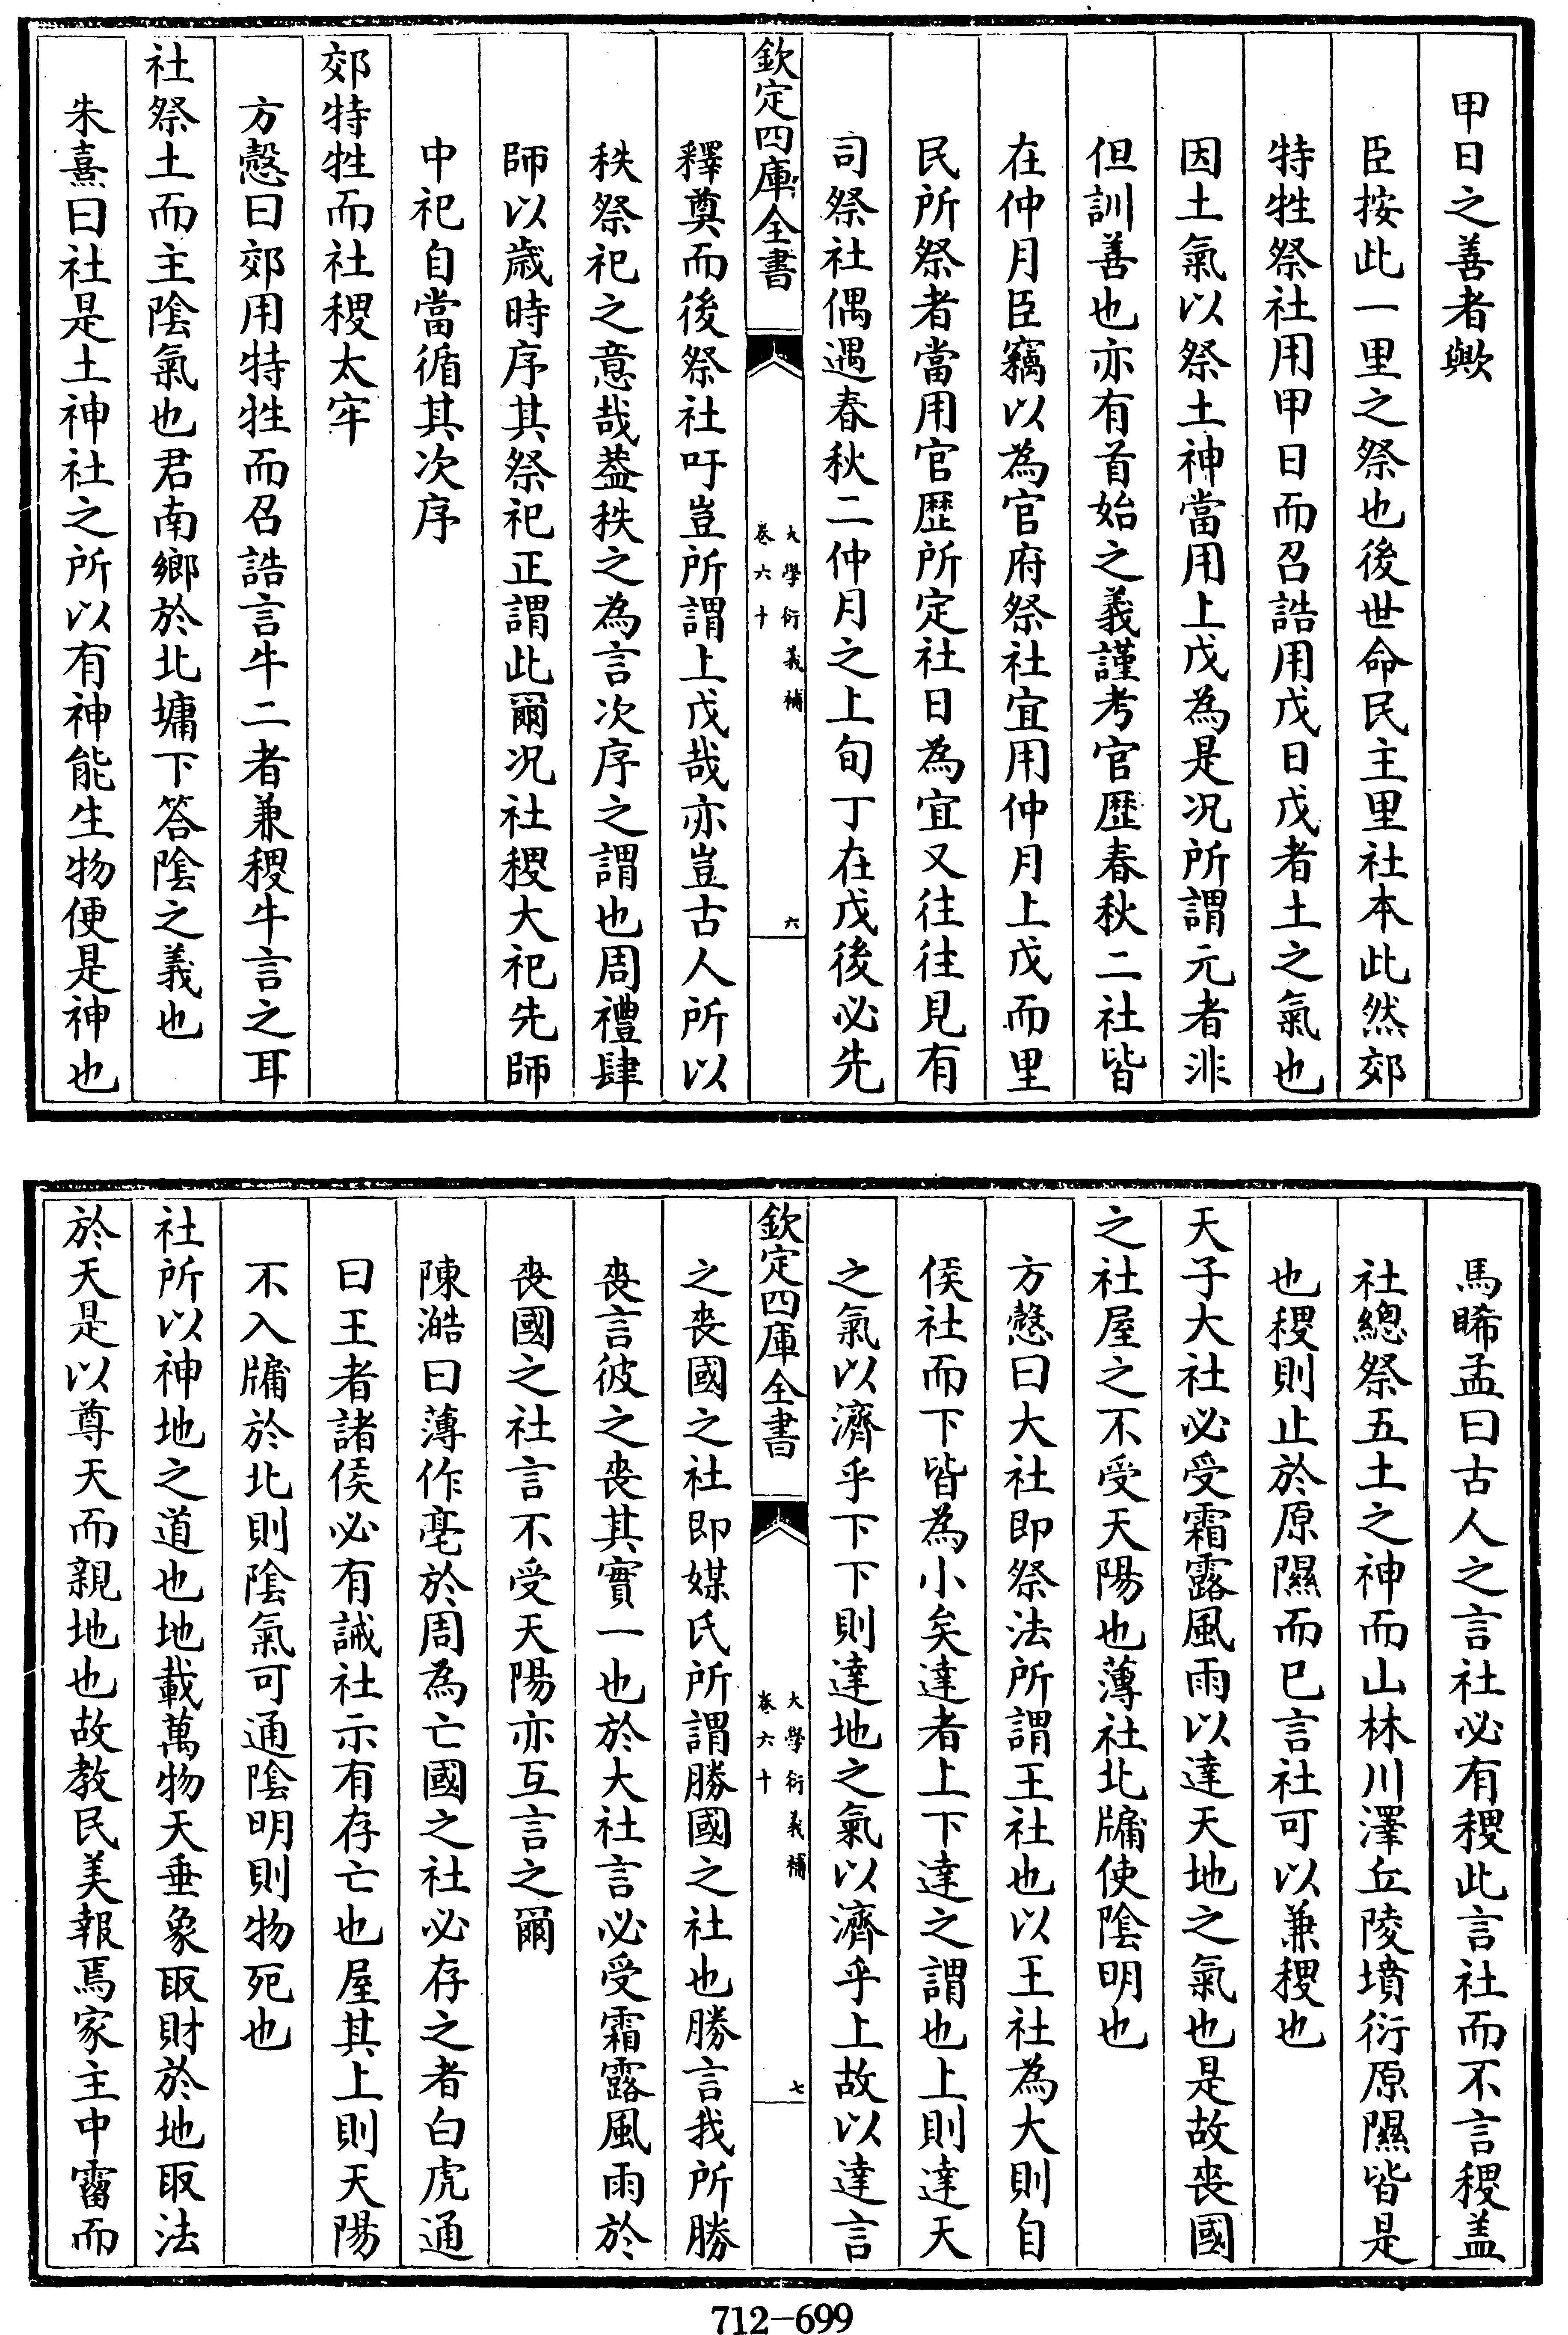 甲日之善者歟
臣按此一里之祭也後世命民主里社本此然郊
特牲祭社用甲日而召誥用戊日戊者土之氣也
因土氣以祭土神當用上戊為是况所謂元者非
但訓善也亦有首始之義謹考官歴春秋二社皆
在仲月臣竊以為官府祭社宜用仲月上戊而里
民所祭者當用官歴所定社日為宜又往往見有
司祭社偶遇春秋二仲月之上旬丁在戊後必先
欽定四庫全書
大學衍義補
卷六十
六
釋奠而後祭社吁豈所謂上戊哉亦豈古人所以
秩祭祀之意哉葢秩之為言次序之謂也周禮肆
師以歲時序其祭祀正謂此爾况社稷大祀先師
中祀自當循其次序
郊特牲而社稷太牢
方慤曰郊用特牲而召誥言牛二者兼稷牛言之耳
社祭土而主陰氣也君南鄉於北墉下答陰之義也
朱熹曰社是土神社之所以有神能生物便是神也
馬晞孟曰古人之言社必有稷此言社而不言稷盖
社總祭五土之神而山林川澤丘陵墳衍原隰皆是
也稷則止於原隰而已言社可以兼稷也
天子大社必受霜露風雨以達天地之氣也是故喪國
之社屋之不受天陽也薄社北牖使陰明也
方慤曰大社即祭法所謂王社也以王社為大則自
侯社而下皆為小矣達者上下達之謂也上則達天
之氣以濟乎下下則達地之氣以濟乎上故以達言
欽定四庫全書
大學衍義補
卷六十
七
之喪國之社即媒氏所謂勝國之社也勝言我所勝
喪言彼之喪其實一也於大社言必受霜露風雨於
喪國之社言不受天陽亦互言之爾
陳澔曰薄作亳於周為亡國之社必存之者白虎通
曰王者諸侯必有誡社示有存亡也屋其上則天陽
不入牖於北則陰氣可通陰明則物死也
社所以神地之道也地載萬物天垂象取財於地取法
於天是以尊天而親地也故教民美報焉家主中霤而
712-699